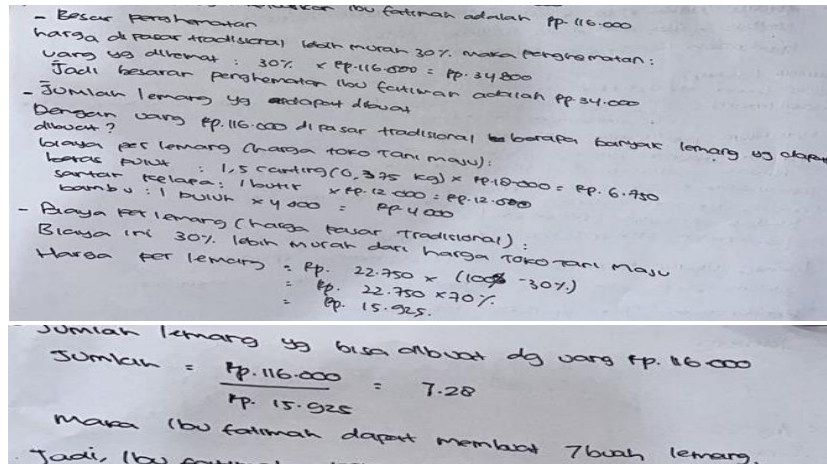 Ibu fatimah adalah Rp. 116.000
- Besar penghematan
harga di pasar tradisional lebih murah 30% maka penghematan :
uang yg dihemat : 30% x Rp. 116.000 = Rp. 34.800
Jadi besaran penghematan Ibu fatimah adalah Rp. 34.000
- Jumlah lemang yg dapat dibuat
Dengan uang Rp. 116.000 di pasar tradisional berapa banyak lemang yg dapat
dibuat ?
biaya per lemang (harga toko Tani maju) :
beras pulut : 1,5 canting (0,375 kg) x Rp. 18.000 = Rp. 6.750
santan kelapa : 1 butir x Rp. 12.000 = Rp. 12.000
bambu : 1 buluh x 4.000 = Rp 4.000
- Biaya per lemang (harga pasar Tradisional) :
Biaya ini 30% lebih murah dari harga Toko Tani Maju
Harga per lemang = Rp. 22.750 x (100% - 30%)
= Rp. 22.750 x 70%
= Rp. 15.925.
Jumlah lemang yg bisa dibuat dg uang Rp. 116.000
Jumlah = Rp. 116.000 / Rp. 15.925 = 7.28
Maka Ibu fatimah dapat membuat 7 buah lemang.
Jadi, Ibu